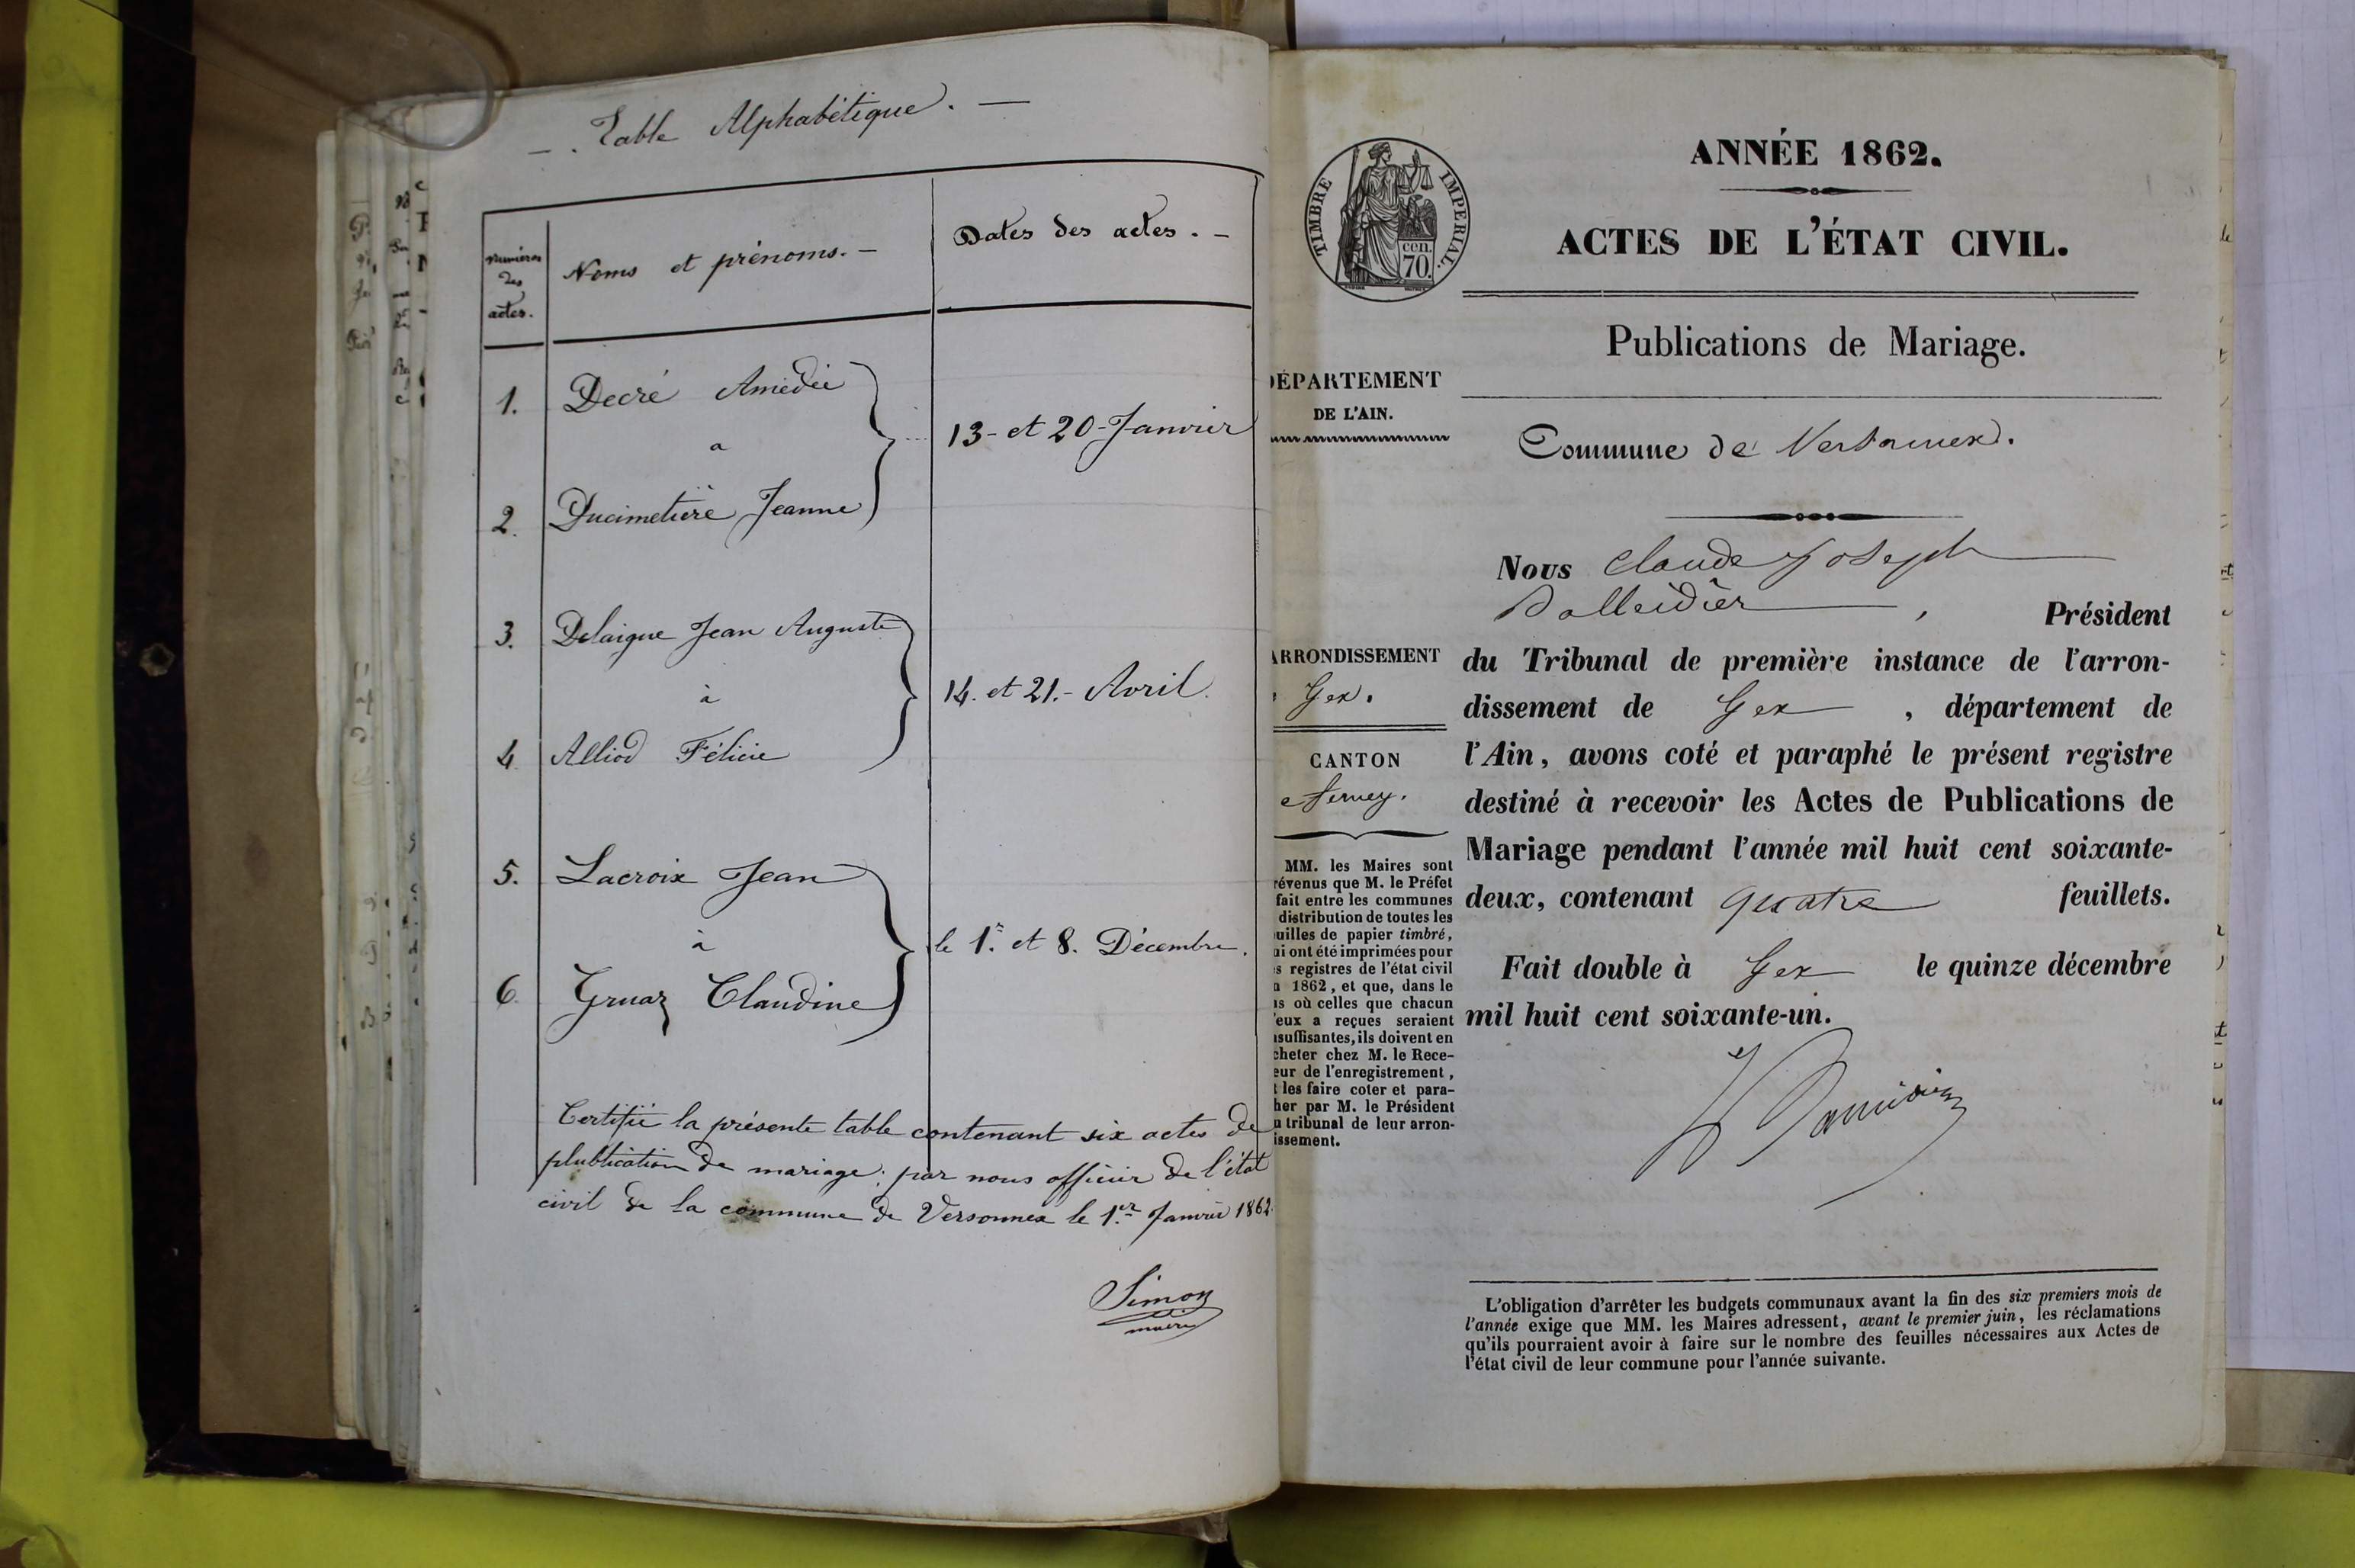 Table Alphabétique.
numéros des actes.
Noms et prénoms.
Dates des actes.
1. Decré Amédée
a
13 et 20 Janvier
2. Ducimetière Jeanne
3. Delaigue Jean Auguste
à
14. et 21. Avril.
4 Alliod Félicie
5. Lacroix Jean
à
le 1.r et 8. Décembre.
6. Gruaz Claudine
Certifié la présente table contenant six actes de
plublication de mariage; par nous officier de l'état
civil de la commune de Versonnex le 1.er Janvier 1862.
Simon
maire
TIMBRE IMPERIAL.
cen.
70.
ANNÉE 1862.
ACTES DE L'ÉTAT CIVIL.
Publications de Mariage.
DÉPARTEMENT
DE L'AIN.
Commune de Versonnex.
ARRONDISSEMENT
Gex.
CANTON
e Ferney.
MM. les Maires sont
révenus que M. le Préfet
fait entre les communes
distribution de toutes les
uilles de papier timbré,
ui ont été imprimées pour
s registres de l'état civil
1862, et que, dans le
as où celles que chacun
'eux a reçues seraient
nsuffisantes, ils doivent en
cheter chez M. le Rece-
eur de l'enregistrement,
t les faire coter et para-
her par M. le Président
u tribunal de leur arron-
issement.
Nous Claude Joseph
, Président
du Tribunal de première instance de l'arron-
dissement de Gex , département de
l'Ain, avons coté et paraphé le présent registre
destiné à recevoir les Actes de Publications de
Mariage pendant l'année mil huit cent soixante-
deux, contenant quatre feuillets.
Fait double à Gex le quinze décembre
mil huit cent soixante-un.
L'obligation d'arrêter les budgets communaux avant la fin des six premiers mois de
l'année exige que MM. les Maires adressent, avant le premier juin, les réclamations
qu'ils pourraient avoir à faire sur le nombre des feuilles nécessaires aux Actes de
l'état civil de leur commune pour l'année suivante.